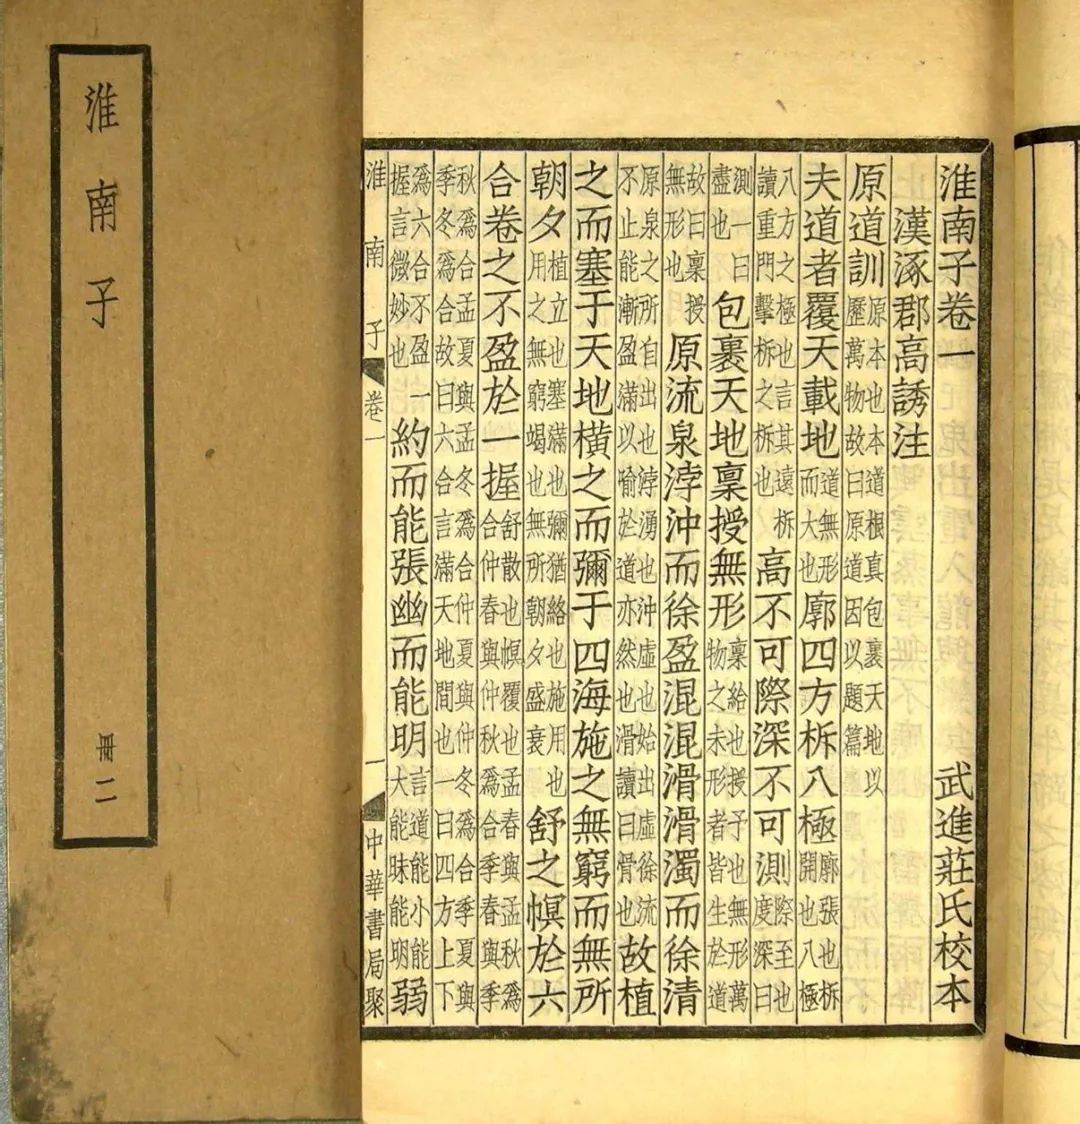 淮南子卷一 武進莊氏校本
漢涿郡高誘注
原道訓原本也本道根真包裹天地以歷萬物故曰原道因以題篇
夫道者覆天載地道無形而大也廓四方柝八極廓張也柝開也八極
八方之極也言其遠柝讀重門擊柝之柝也高不可際深不可測際至也度深曰
測一曰盡也包裹天地稟授無形稟給也授予也無形萬物之未形者皆生於道
故曰稟授無形也原流泉浡沖而徐盈混混滑滑濁而徐清
原泉之所自出也浡湧也沖虛也始出虛徐流不止能漸盈滿以喻於道亦然也滑讀曰骨也故植
之而塞于天地橫之而彌于四海施之無窮而無所
朝夕植立也塞滿也彌猶絡也施用也用之無窮竭也無所朝夕盛衰舒之幎於六
合卷之不盈於一握舒散也幎覆也孟春與孟秋爲合仲春與仲秋爲合季春與季
秋爲合孟夏與孟冬爲合仲夏與仲冬爲合季夏與季冬爲合故曰六合言滿天地間也一曰四方上下
爲六合不盈一握言微妙也約而能張幽而能明言道能小能大能昧能明弱
淮南子 卷一 一 中華書局聚
淮南子 冊二